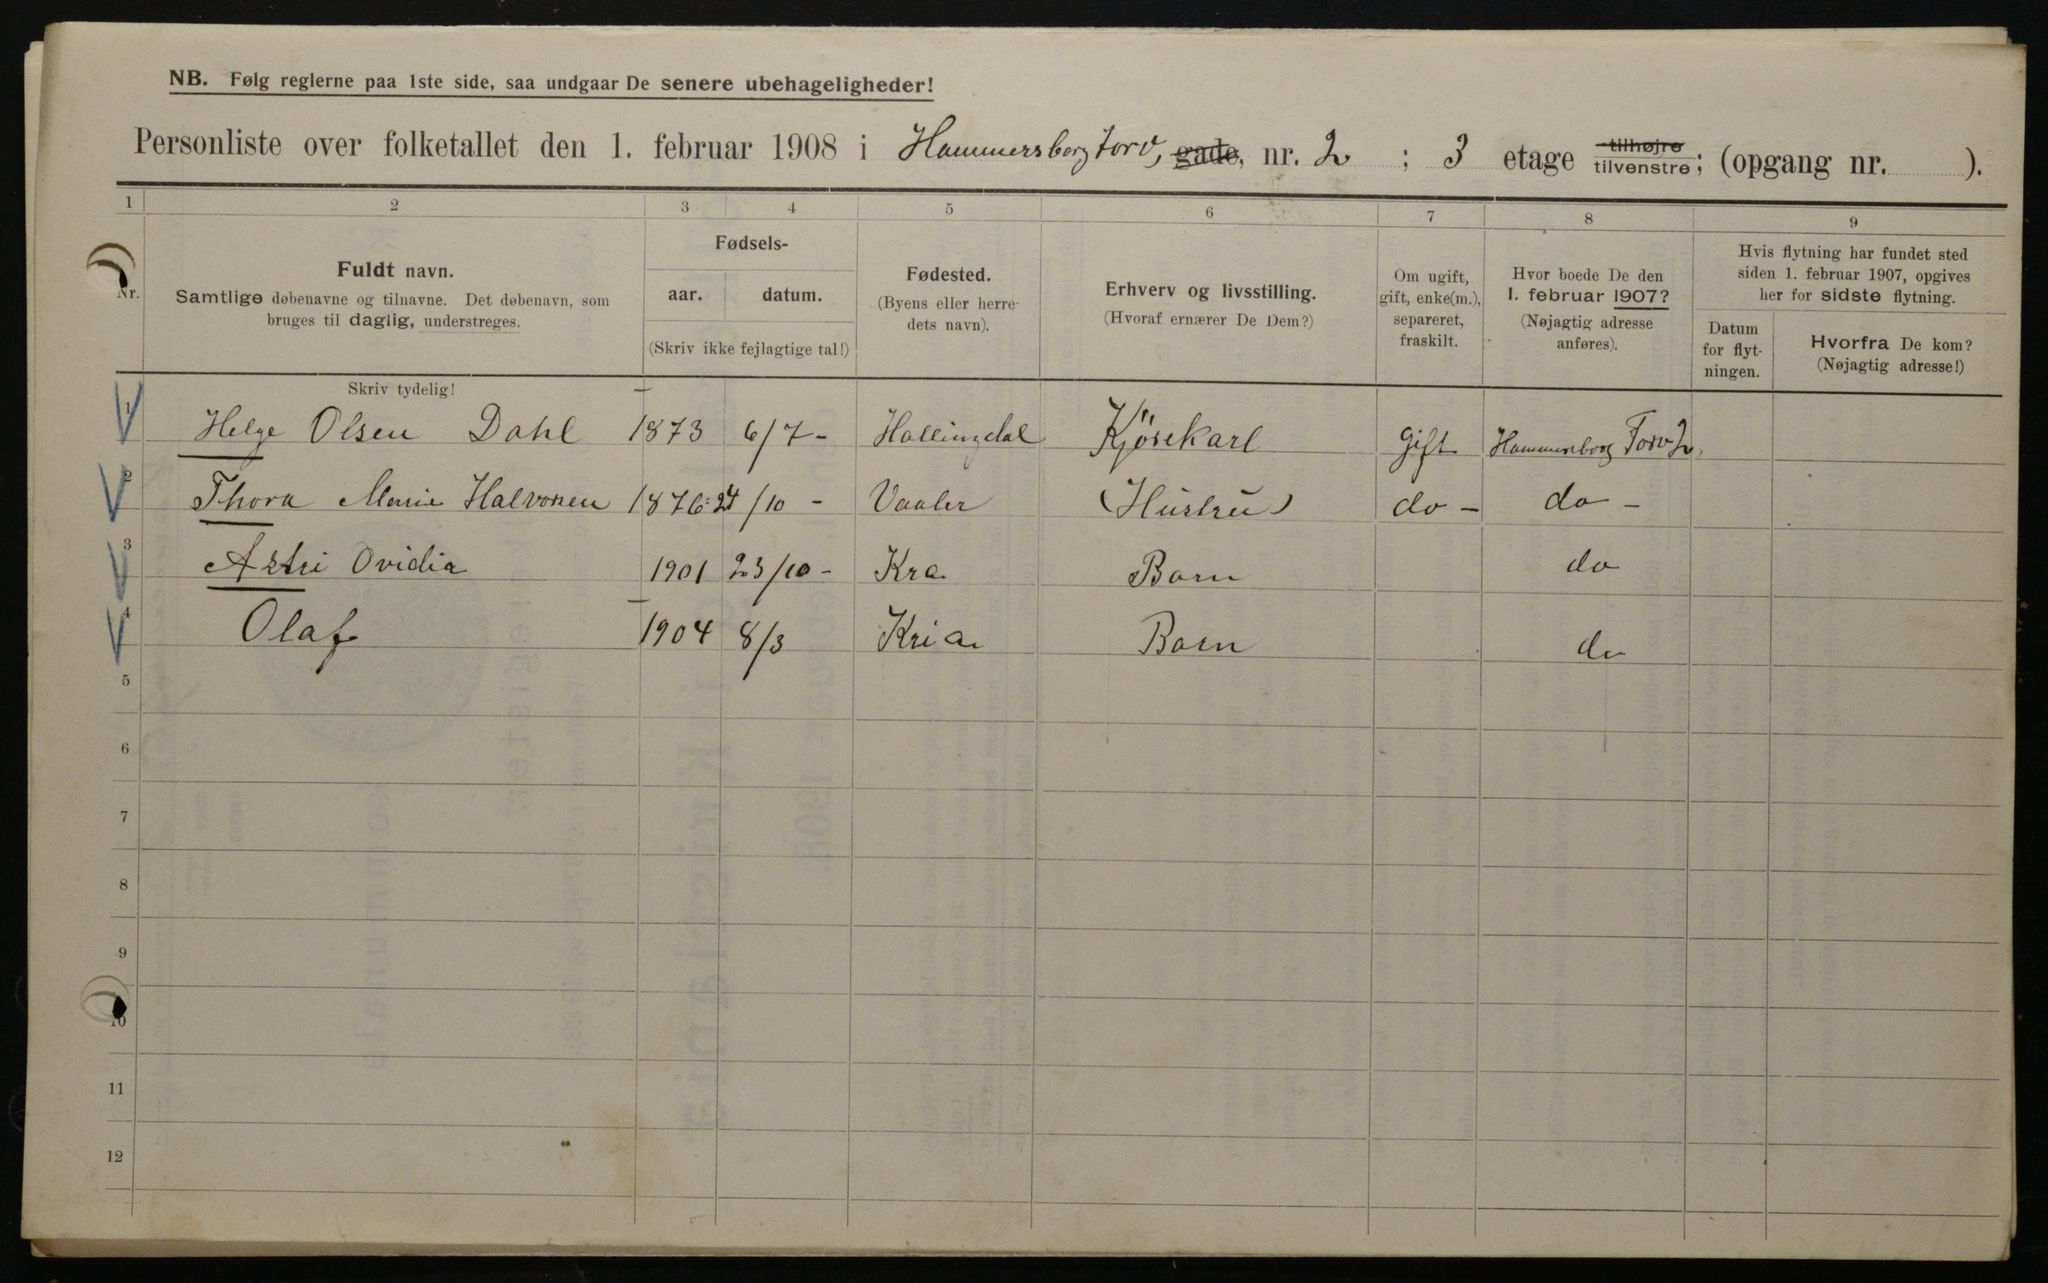 NB. Følg reglerne paa 1ste side, saa undgaar De senere ubehageligheder!
Personliste over folketallet den 1. februar 1908 i Hammersborg Torv, gade, nr. 2 ; 3 etage tilhøjre tilvenstre; (opgang nr. ).
1 2 3 4 5 6 7 8 9
Nr.
Fuldt navn.
Samtlige døbenavne og tilnavne. Det døbenavn, som
bruges til daglig, understreges.
Fødsels-
aar. datum.
(Skriv ikke fejlagtige tal!)
Fødested.
(Byens eller herre-
dets navn).
Erhverv og livsstilling.
(Hvoraf ernærer De Dem?)
Om ugift,
gift, enke(m.),
separeret,
fraskilt.
Hvor boede De den
1. februar 1907?
(Nøjagtig adresse
anføres).
Hvis flytning har fundet sted
siden 1. februar 1907, opgives
her for sidste flytning.
Datum
for flyt-
ningen.
Hvorfra De kom?
(Nøjagtig adresse!)
Skriv tydelig!
1 Helge Olsen Dahl 1873 6/7 - Hallingdal Kjørekarl Gift Hammersborg Torv 2.
2 Thora Marie Halvorsen 1876 24/10 - Vaaler (Hustru) do - do -
3 Astri Ovidia 1901 23/10 - Kra. Barn do
4 Olaf 1904 8/3 Kria. Barn do
5
6
7
8
9
10
11
12